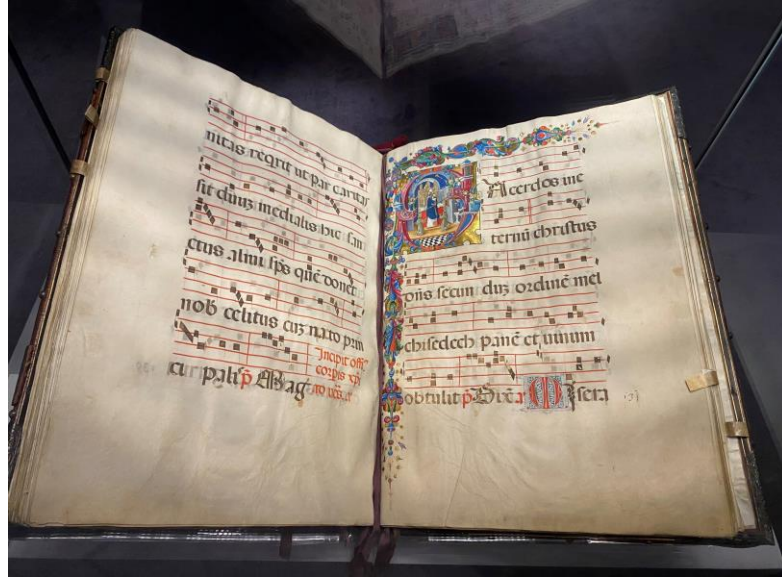 nitas regnt ut par caritas
sit duuz medialis hic san
ctus almi sps quē donet
nob celitus cuz nato prin
cipali
Incipit offi
corpis xpi
p̄ Mag
Sacerdos in e
ternū christus
dn̄s secun duz ordinē mel
chisedech panē et uinum
obtulit p̄ Dixit Misera